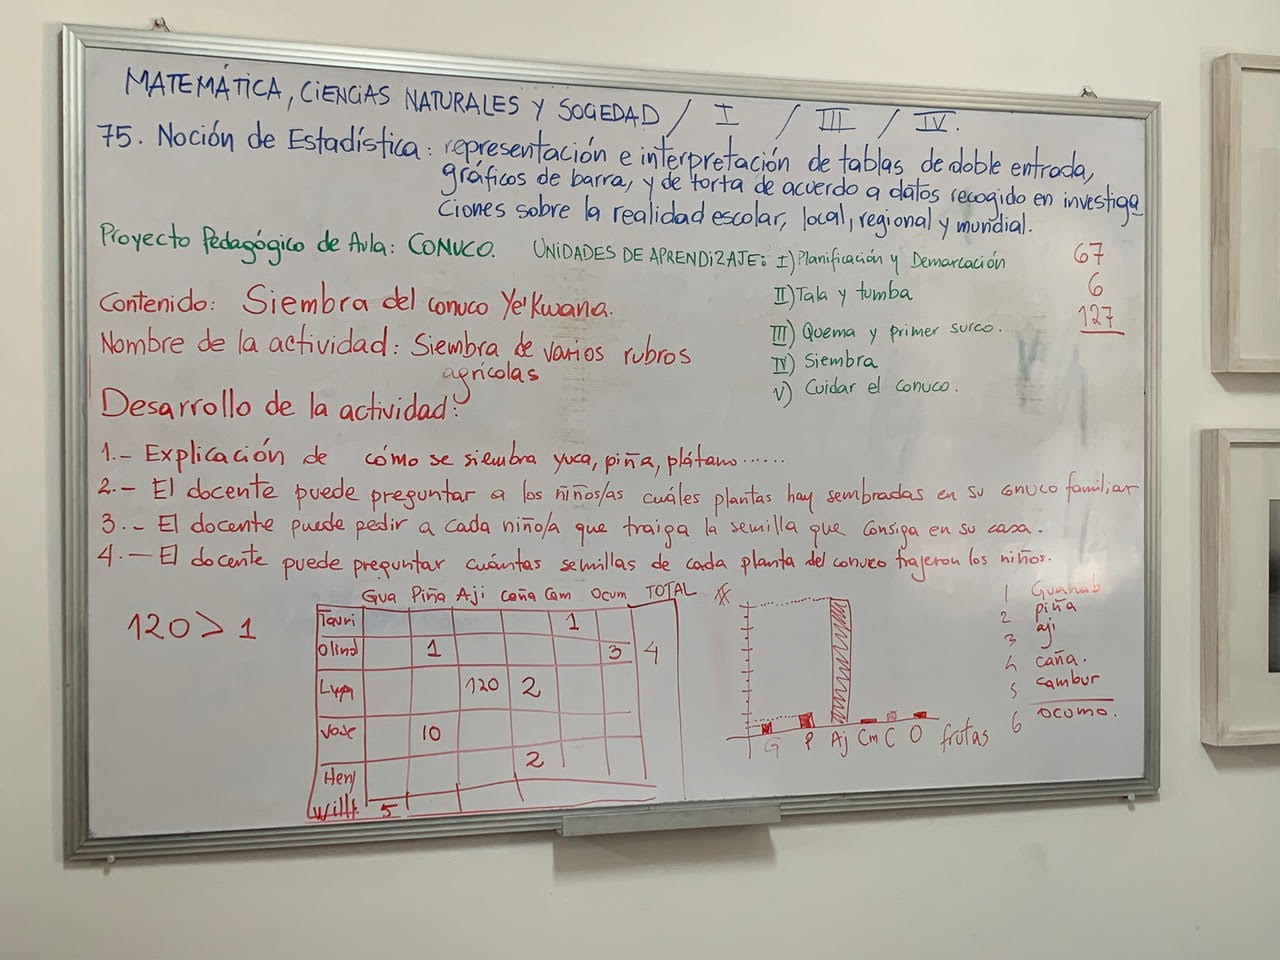 MATEMÁTICA, CIENCIAS NATURALES Y SOCIEDAD / I / III / IV.
75. Noción de Estadística: representación e interpretación de tablas de doble entrada,
gráficos de barra, y de torta de acuerdo a datos recogido en investiga
ciones sobre la realidad escolar, local, regional y mundial.
Proyecto Pedagógico de Aula: CONUCO. UNIDADES DE APRENDIZAJE: I) Planificación y Demarcación
II) Tala y tumba
III) Quema y primer surco.
IV) Siembra
V) Cuidar el conuco.
67
6
127
Contenido: Siembra del conuco Ye'Kwana.
Nombre de la actividad: Siembra de varios rubros
agrícolas
Desarrollo de la actividad:
1.- Explicación de cómo se siembra yuca, piña, plátano......
2.- El docente puede preguntar a los niños/as cuáles plantas hay sembradas en su conuco familiar
3.- El docente puede pedir a cada niño/a que traiga la semilla que consiga en su casa.
4.- El docente puede preguntar cuántas semillas de cada planta del conuco trajeron los niños.
120 > 1
Gua Piña Aji caña Cam Ocum TOTAL
Tauri 1
Olind 1 3 4
120 2
Jose 10
Heny 2
5
G P Aj Cm C O frutas
1 Guanab
2 piña
3 aji
4 caña.
5 cambur
6 ocomo.